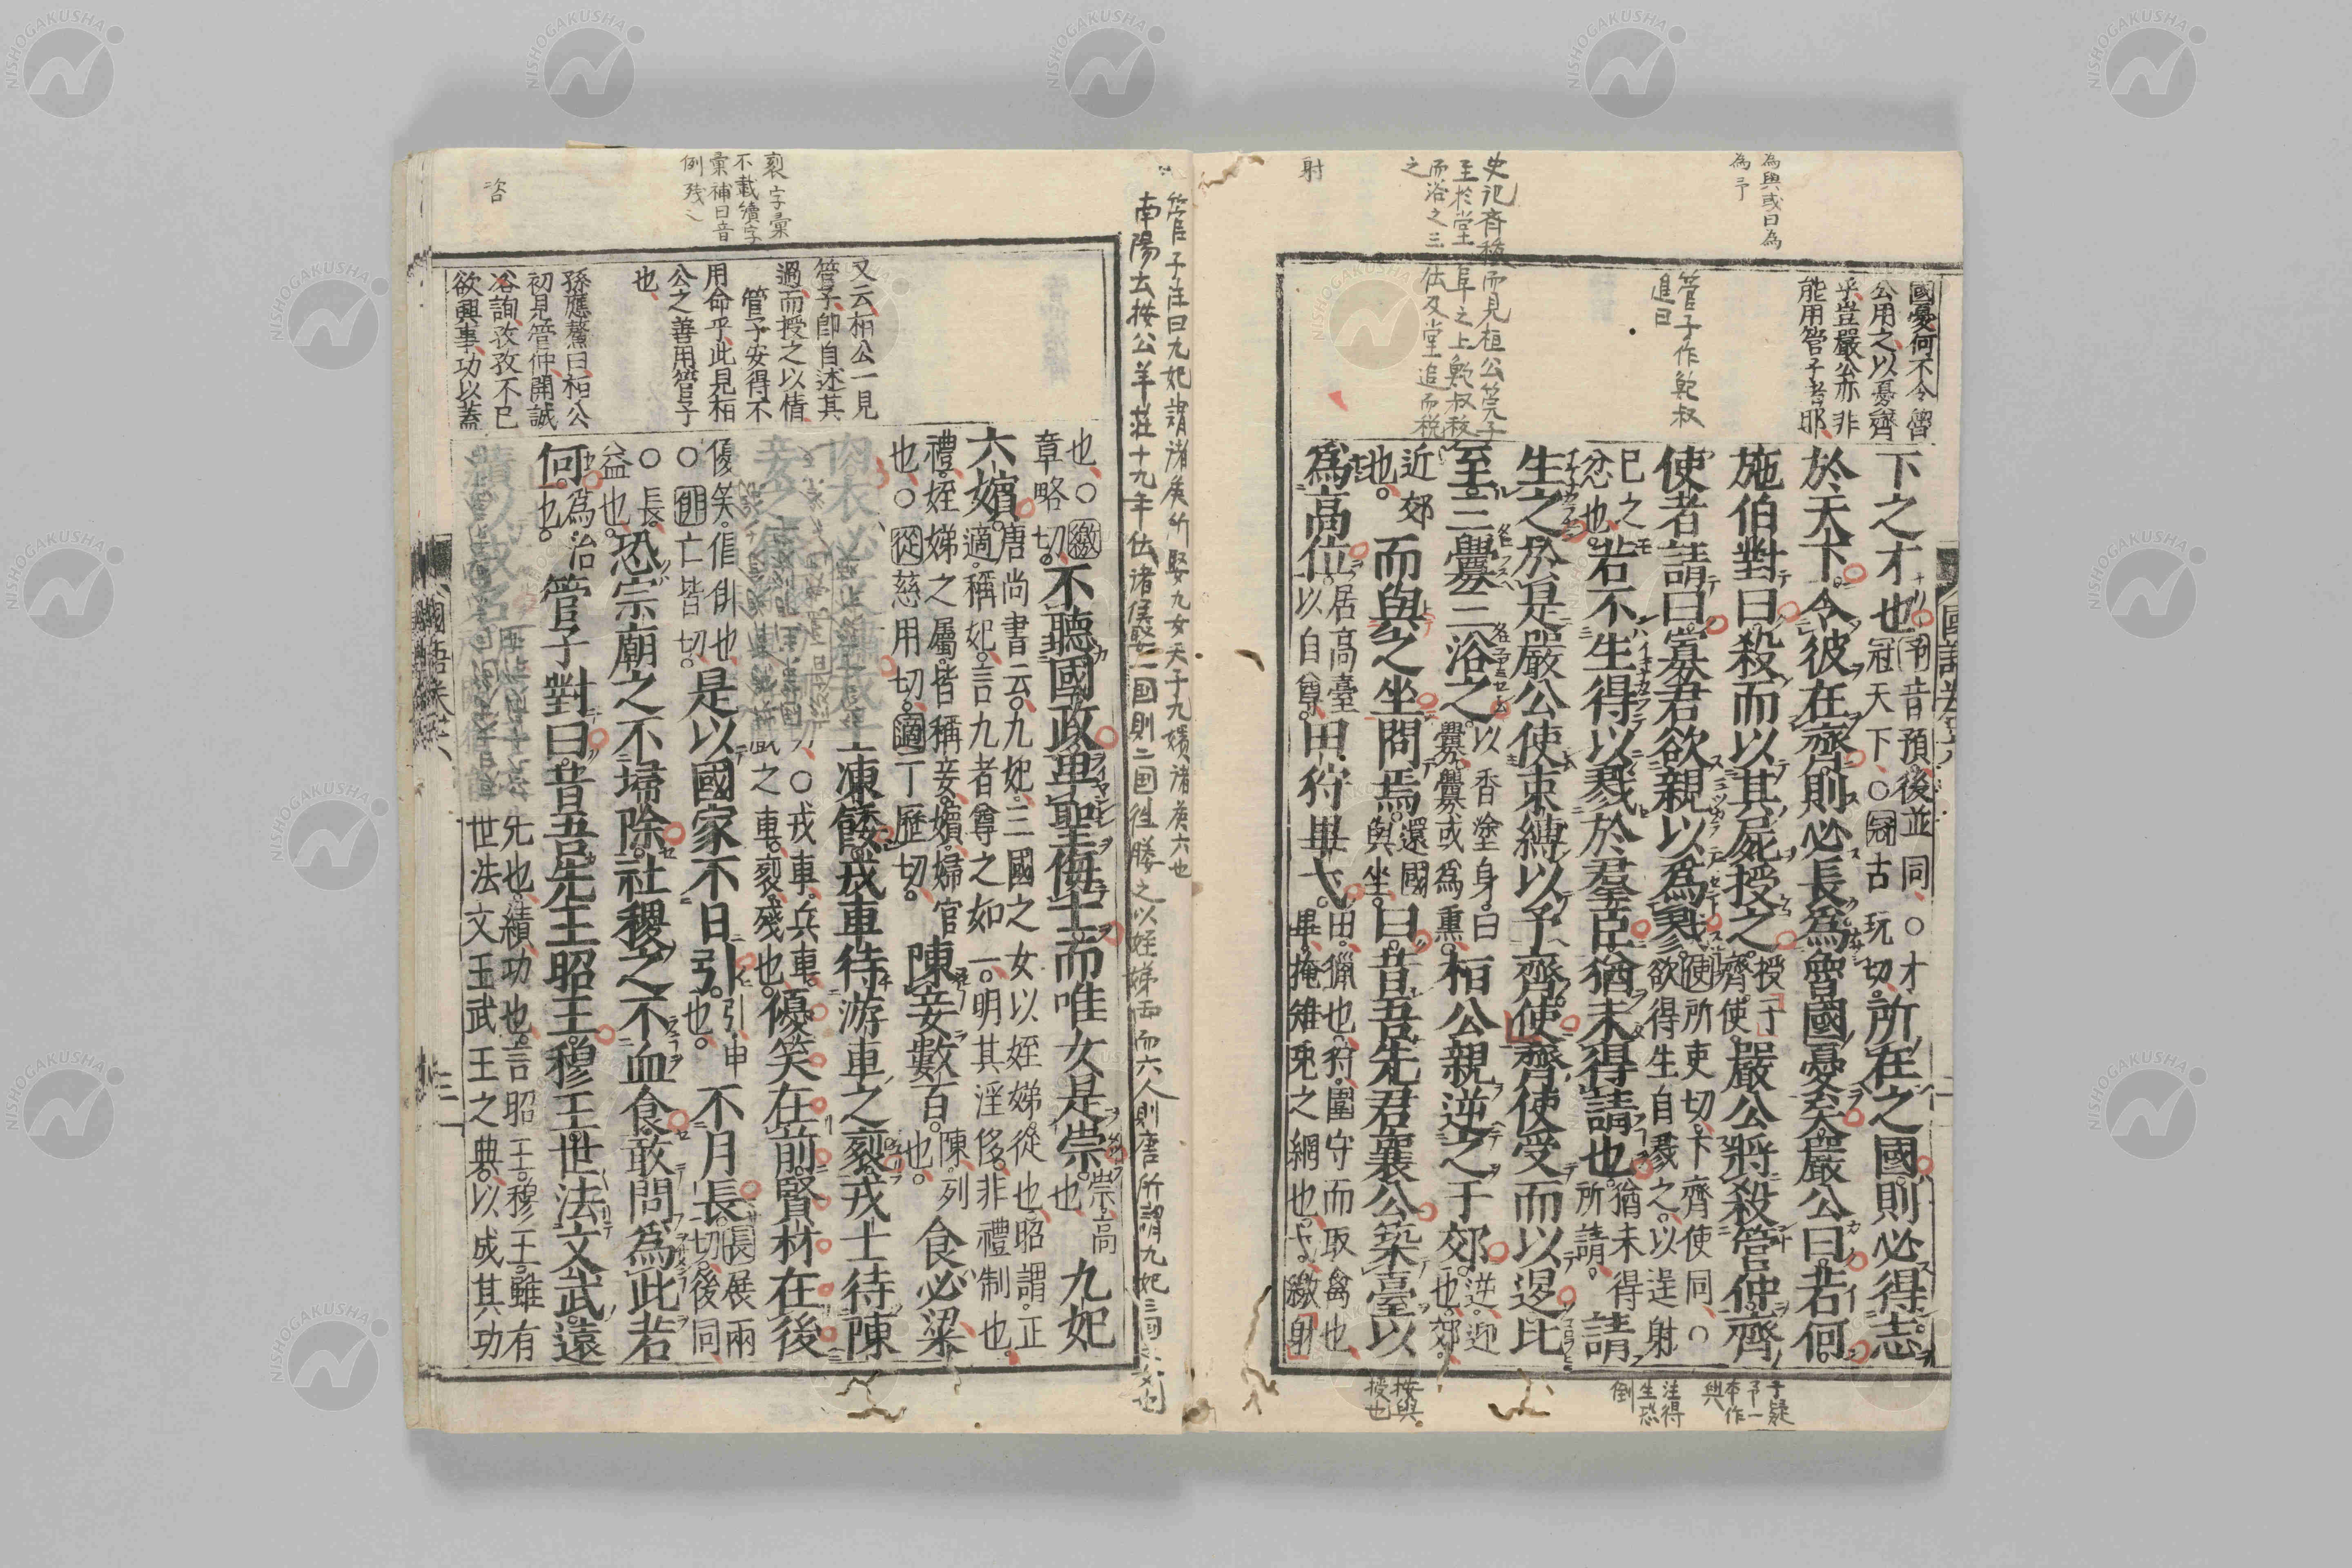 為與或曰為
為予
史記齊被而見桓公管子
至於堂阜之上鮑叔祓
而浴之三
之
射
國憂何不令魯
公用之以憂齊
乎豈嚴公亦非
能用管子者耶
管子作鮑叔
進曰
下之才也
音預後並同○才
冠天下○冠古玩切
所在之國則必得志
於天下令彼在齊則必長為魯國憂矣嚴公曰若何
施伯對曰殺而以其屍授之
授予
齊使
嚴公將殺管仲齊
使者請曰寡君欲親以為戮
欲得生自戮之以逞射
使所吏切下齊使同○
已之
忿也
若不生得以戮於羣臣猶未得請也
猶未得
所請
請
生之於是嚴公使束縛以予齊使齊使受而以退比
至三釁三浴之
以香塗身曰
釁釁或為熏
桓公親逆之于郊
逆迎
也郊
近郊
也
而與之坐問焉
還國
與坐
曰昔吾先君襄公築臺以
為高位
居高臺
以自尊
田狩畢弋
田獵也狩圍守而取禽也
畢掩雉兔之網也弋繳射
于疑
予一
本作
與
注得
生恐
倒
按與
授也
管子注曰九妃謂諸侯所娶九女天子九嬪諸侯六也
南陽云按公羊莊十九年傳諸侯娶一国則二国往媵之以姪娣
裂字彙
不載續字
彙補曰音
例殘也
咨
又云桓公一見
管子卽自述其
過而授之以情
管子安得不
用命乎此見桓
公之善用管子
也
孫應鰲曰桓公
初見管仲開誠
咨詢孜孜不已
欲興事功以蓋
也○繳
章略切
不聽國政卑聖侮士而唯女是崇
崇高
也
九妃
六嬪
唐尚書云九妃三國之女以姪娣從也昭謂正
適稱妃言九者尊之如一明其淫侈非禮制也
禮姪娣之屬皆稱妾嬪婦官
也○從慈用切適丁歷切
陳妾數百
陳列
也
食必粱
凍餒戎車待游車之裂戎士待陳
○戎車兵車
之車裂殘也
優笑在前賢材在後
優笑倡俳也
○俳亡皆切
是以國家不日引
引申
也
不月長
長展兩
切後同
○長
益也
恐宗廟之不埽除社稷之不血食敢問為此若
何
為治
也
管子對曰昔吾先王昭王穆王世法文武遠
先也績功也言昭王穆王雖有
世法文王武王之典以成其功